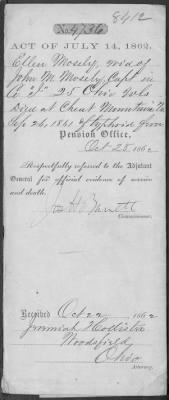 8412
No 4736
ACT OF JULY 14, 1862.
Ellen Mosely, wid of
John M. Mosely, Capt in
Co. "I" 25 Ohio Vols
Died at Cheat Mountain Va
Sep 26, 1861 of typhoid fever
Pension Office,
Oct 28 1862
Respectfully referred to the Adjutant
General for official evidence of service
and death.
Commissioner.
Received Oct 22 1862
Jeremiah Hollister
Woodsfield
Ohio
Attorney.